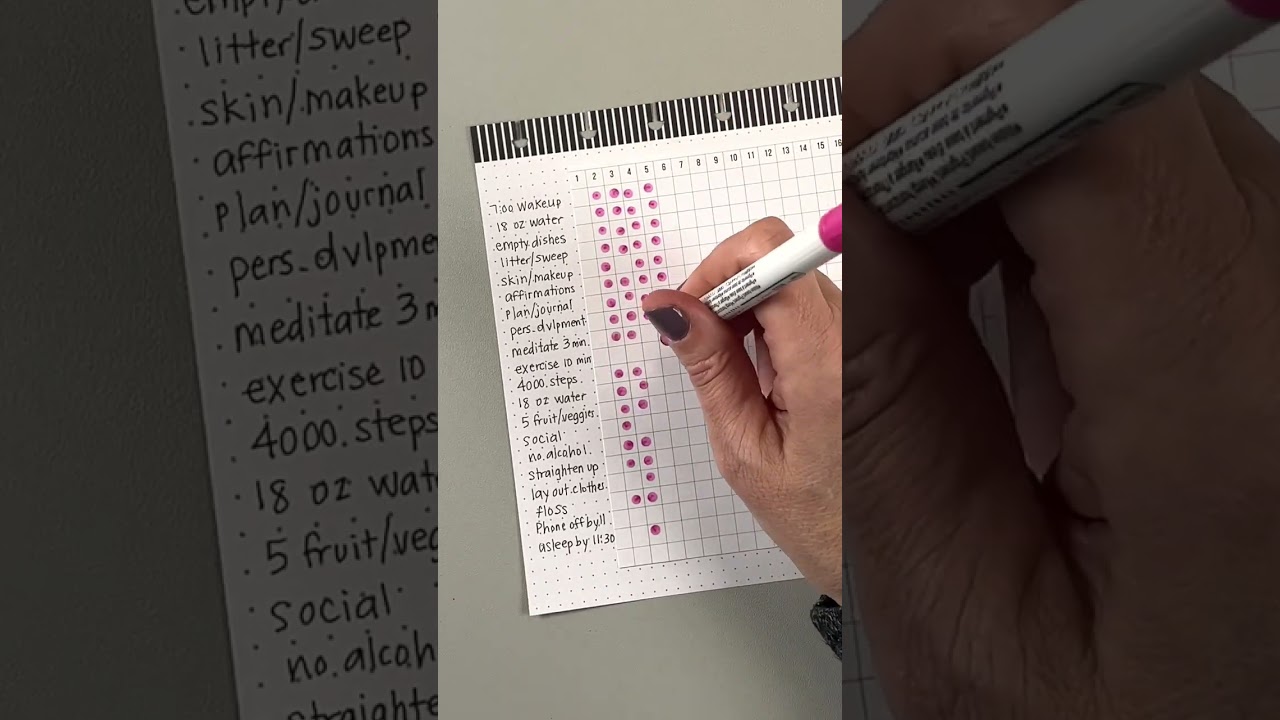 empty
litter/sweep
skin/.makeup
affirmations
plan/journal
pers. dvlpme
meditate 3 m
exercise 10
4000.steps
18 oz wat
5 fruit/veg
social
no.alcoh
straighte
1 2 3 4 5 6 7 8 9 10 11 12 13 14 15 16
7:00 wakeup
18 oz water
empty dishes
litter/sweep
skin/makeup
affirmations
plan/journal
pers. dvlpment
meditate 3 min.
exercise 10 min
4000 steps
18 oz water
5 fruit/veggies
social
no.alcohol.
straighten up
lay out.clothes
floss
Phone off by 11
asleep by 11:30